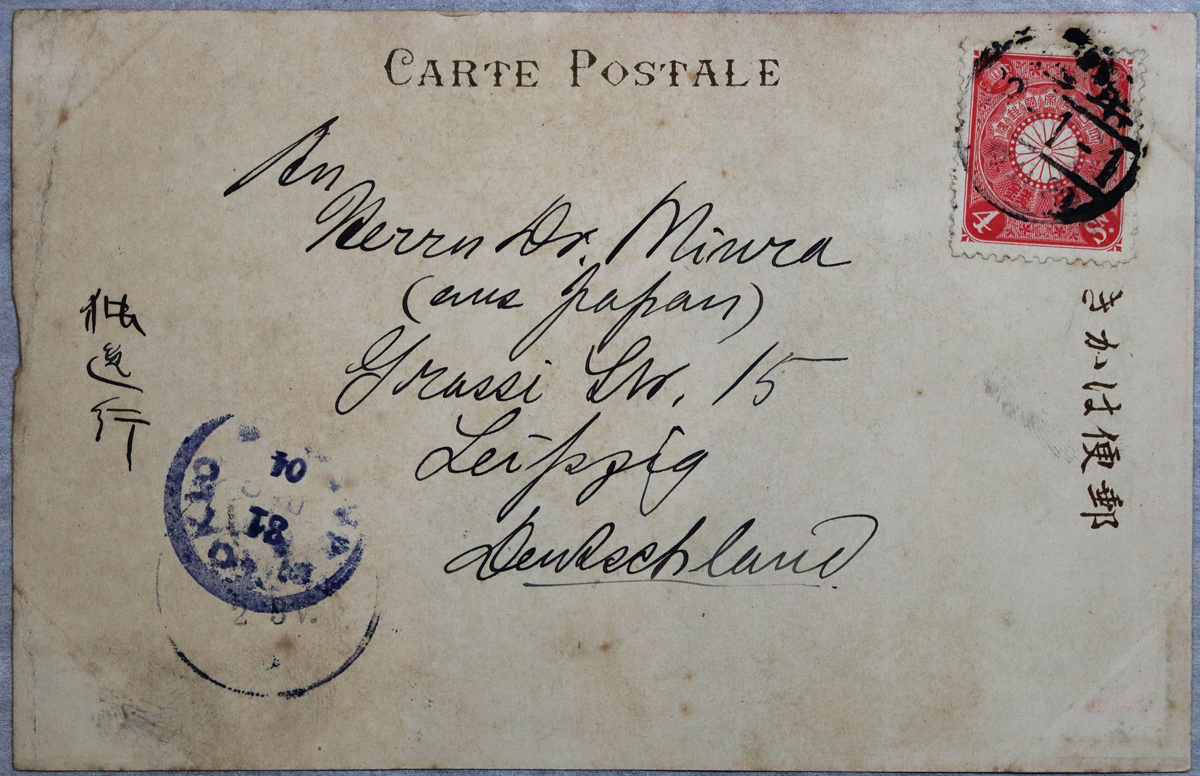 CARTE POSTALE
An
Herrn Dr. Miura
(aus Japan)
Grassi Str. 15
Leipzig
Deutschland
4 S.
きかは便郵
行
TOKIO
04
31